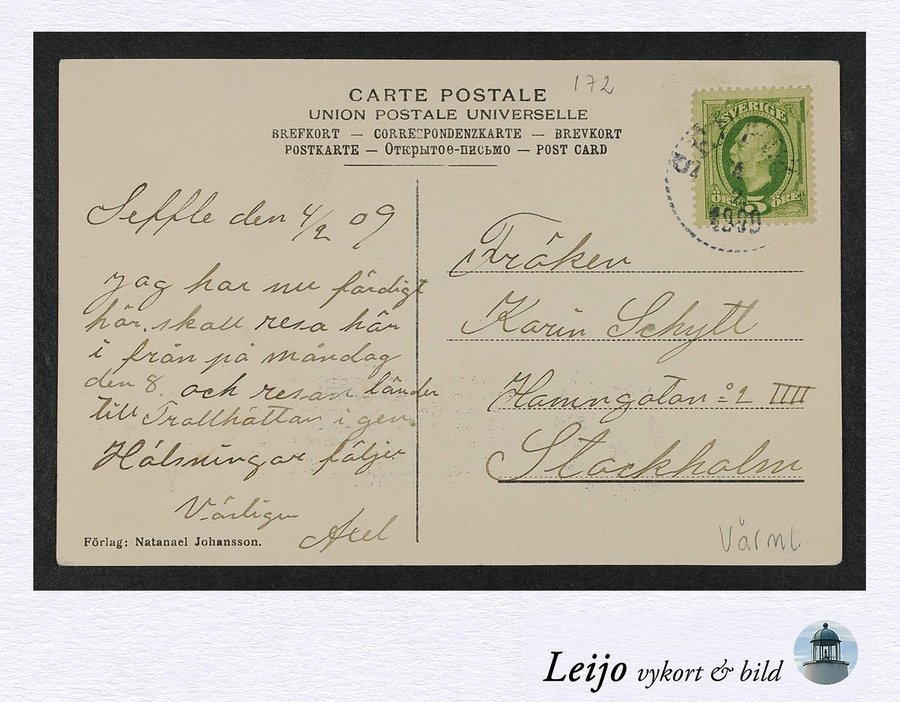 CARTE POSTALE
172
UNION POSTALE UNIVERSELLE
BREFKORT — CORRESPONDENZKARTE — BREVKORT
POSTKARTE — Открытое-письмо — POST CARD
SVERIGE
ÖRE 5 ÖRE
4
2
1909
Seffle den 4/2 09
Jag har nu färdigt
här. skall resa här
i från på måndag
den 8. och resan länder
till Trollhättan i gen.
Hälsningar följer
Vänligen
Axel
Fröken
Karin Schytt
Hamngatan 2 IIII
Stockholm
Förlag: Natanael Johansson.
Värml
Leijo vykort & bild